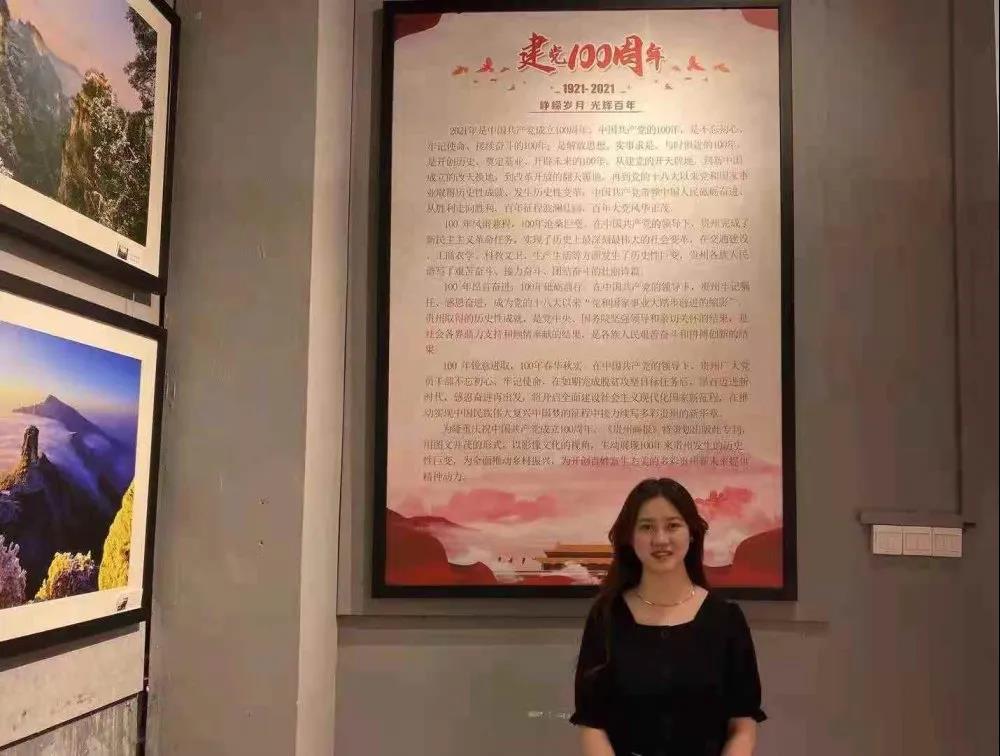 建党100周年
1921-2021
峥嵘岁月 光辉百年
2021年是中国共产党成立100周年。中国共产党的100年，是不忘初心、
牢记使命、接续奋斗的100年；是解放思想、实事求是、与时俱进的100年，
是开创历史、奠定基业、开辟未来的100年。从建党的开天辟地，到新中国
成立的改天换地，到改革开放的翻天覆地，再到党的十八大以来党和国家事
业取得历史性成就、发生历史性变革，中国共产党带领中国人民砥砺奋进、
从胜利走向胜利，百年征程波澜壮阔，百年大党风华正茂。
100 年风雨兼程，100年沧桑巨变。在中国共产党的领导下，贵州完成了
新民主主义革命任务，实现了历史上最深刻最伟大的社会变革，在交通建设
、工商农学、科教文卫、生产生活等方面发生了历史性巨变，贵州各族人民
谱写了艰苦奋斗、接力奋斗、团结奋斗的壮丽诗篇。
100 年昂首奋进，100年砥砺前行。在中国共产党的领导下，贵州牢记嘱
托、感恩奋进，成为党的十八大以来“党和国家事业大踏步前进的缩影”。
贵州取得的历史性成就，是党中央、国务院坚强领导和亲切关怀的结果，是
社会各界鼎力支持和倾情奉献的结果，是各族人民艰苦奋斗和拼搏创新的结
果。
100 年锐意进取，100年春华秋实。在中国共产党的领导下，贵州广大党
员干部不忘初心、牢记使命，在如期完成脱贫攻坚目标任务后，昂首迈进新
时代，感恩奋进再出发，将开启全面建设社会主义现代化国家新征程，在推
动实现中国民族伟大复兴中国梦的征程中接力续写多彩贵州的新华章。
为隆重庆祝中国共产党成立100周年，《贵州画报》特策划出版此专刊，
用图文并茂的形式，以影像文化的视角，生动展现100年来贵州发生的历史
性巨变，为全面推动乡村振兴，为开创百姓富生态美的多彩贵州新未来提供
精神动力。